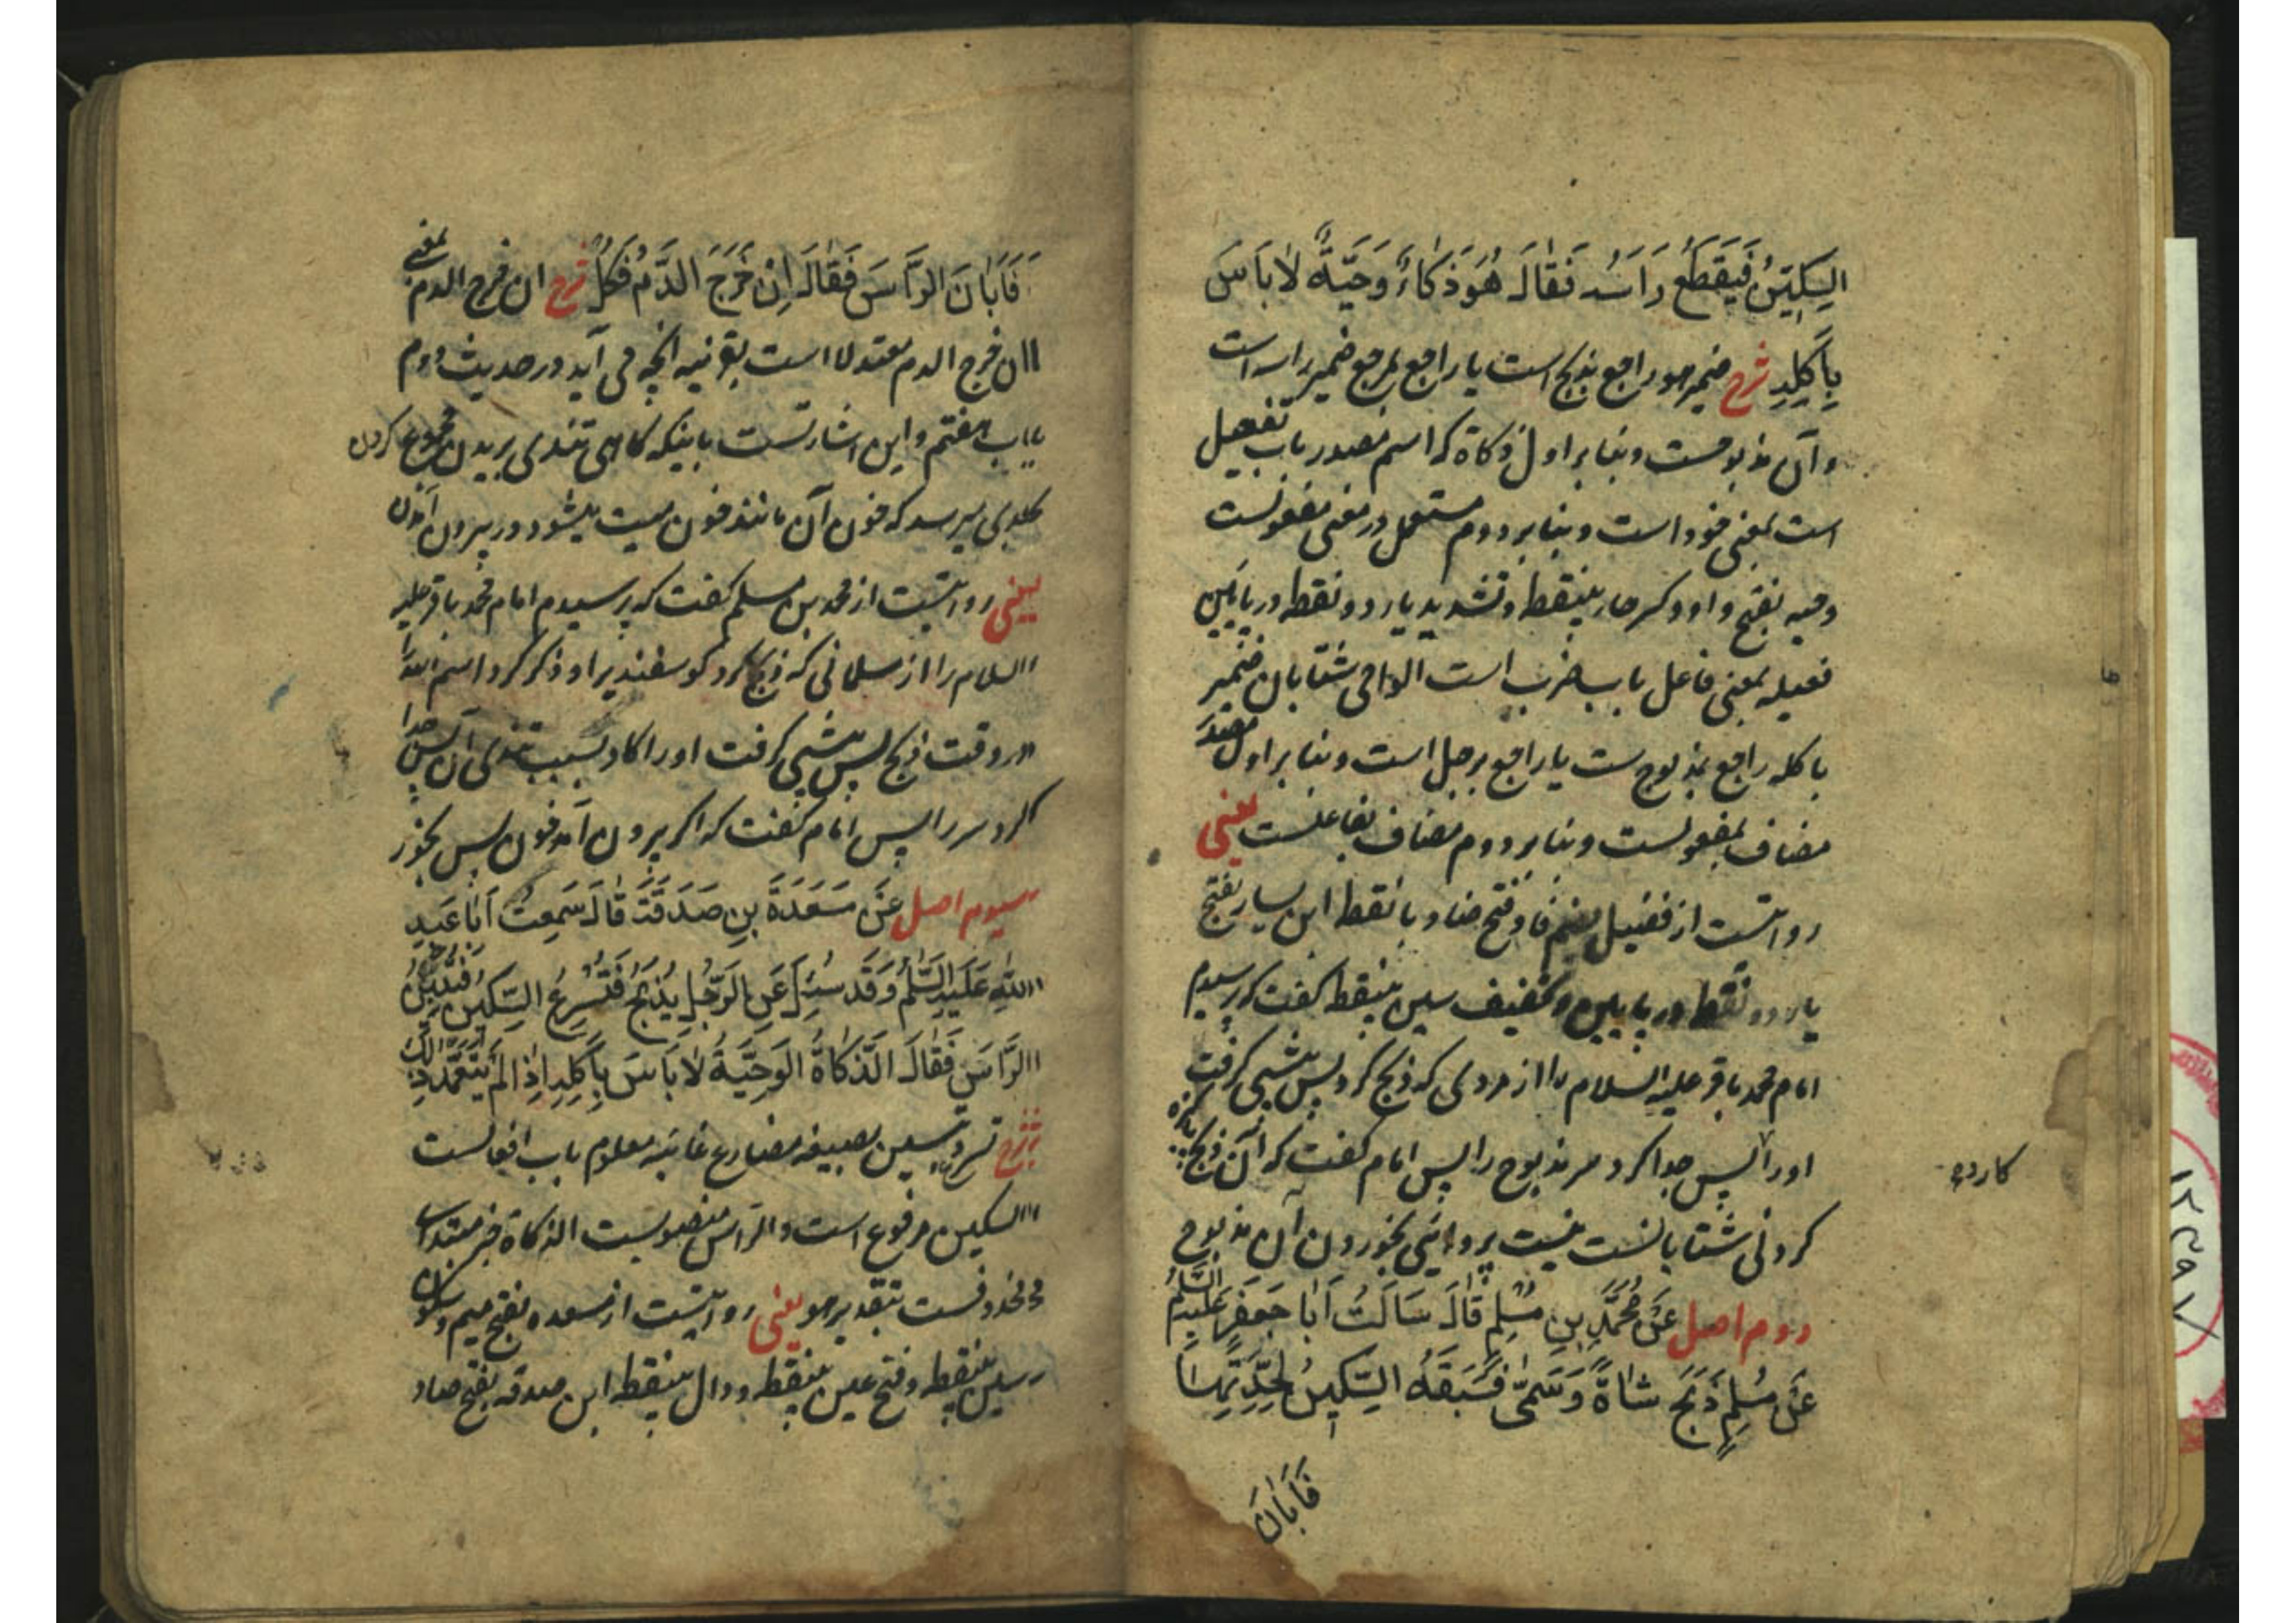 السِكِّينُ فَيَقطَع رَاسَهُ فَقٰالَ هُوَ ذَكاةٌ وَحِيَّةٌ لاٰ بَاَسَ
بِاَكلِهِ شرح ضمیر هو راجع بذبح است یا راجع بمرجع ضمیر راسه است
و آن مذبوحست و بنابر اول ذکاة که اسم مصدر باب تفعیل
است بمعنی خود است و بنابر دوم مستعمل در معنی مفعولست
وحیه بفتح واو و کسر حاء بینقطه و تشدید یاء دو نقطه در پایین
فعیله بمعنی فاعل باب ضرب است الواحی شتابان ضمیر
باکله راجع بمذبوح ست یا راجع برجل است و بنابر اول مصدر
مضاف بمفعولست و بنابر دوم مضاف بفاعلست یعنی
روایتست از فضیل بضم فا و فتح ضاد با نقطه ابن یسار بفتح
یاء دو نقطه در پایین و تخفیف سین بینقطه گفت که پرسیدم
امام محمد باقر علیه السلام را از مردی که ذبح کرد پس پیشی گرفت
کارد
او را پس جدا کرد سر مذبوح را پس امام گفت که آن ذبح
کردنی شتابانست نیست پروائی بخوردن آن مذبوح
دوم اصل عَن مُحَمَّدِ بنِ مُسْلِمٍ قٰالَ سَاَلتُ اَبٰا جَعفَرٍ عَلَيهِ السَّلٰمُ
عَن مُسلِمٍ ذَبَحَ شاٰةً وَسَمّىٰ فَسَبَقَهُ السِّكينُ بِحِدَّتِهٰا
فَاَبٰانَ
فَاَبٰانَ الرَّاَسَ فَقٰالَ اِنْ خَرَجَ الدَّمُ فَكُلْ شرح ان خرج الدم بمعنی
ان خرج الدم معتدلا است بقرینه آنچه می آید در حدیث دوم
باب هفتم و این اشارتست باینکه گاهی تندی بریدن مجموع کردن
بحدی میرسد که خون آن مانند خون میت میشود در بیرون آمدن
یعنی روایتست از محمد بن مسلم گفت که پرسیدم امام محمد باقر علیه
السلام را از مسلمانی که ذبح کرد گوسفندیرا و ذکر کرد اسم الله را
در وقت ذبح پس پیشی گرفت او را کارد بسبب تندی آن پس جدا
کرد سر را پس امام گفت که اگر بیرون آمد خون پس بخور
سیوم اصل عَن مَسعَدَةَ بنِ صَدَقَةَ قٰالَ سَمِعتُ اَبٰا عَبدِ
اللّٰهِ عَلَيهِ السَّلٰمُ وَقَد سُئِلَ عَنِ الرَّجُلِ يَذبَحُ فَتُسرِعُ السِّكينُ فَتُبينُ
الرَّاَسَ فَقٰالَ الذَّكاٰةُ الوَحِيَّةُ لاٰ بَاَسَ بِاَكلِهِ اِذٰا لَم يَتَعَمَّد ذٰلِكَ
شرح تسرع و تبین بصیغه مضارع غائبه معلوم باب افعالست
السکین مرفوع است و الراس منصوبست الذکاة خبر مبتدای
محذوفست بتقدیر هو یعنی روایتست از مسعده بفتح میم و سکون
سین بینقطه و فتح عین بینقطه و دال بینقطه ابن صدقه بفتح صاد